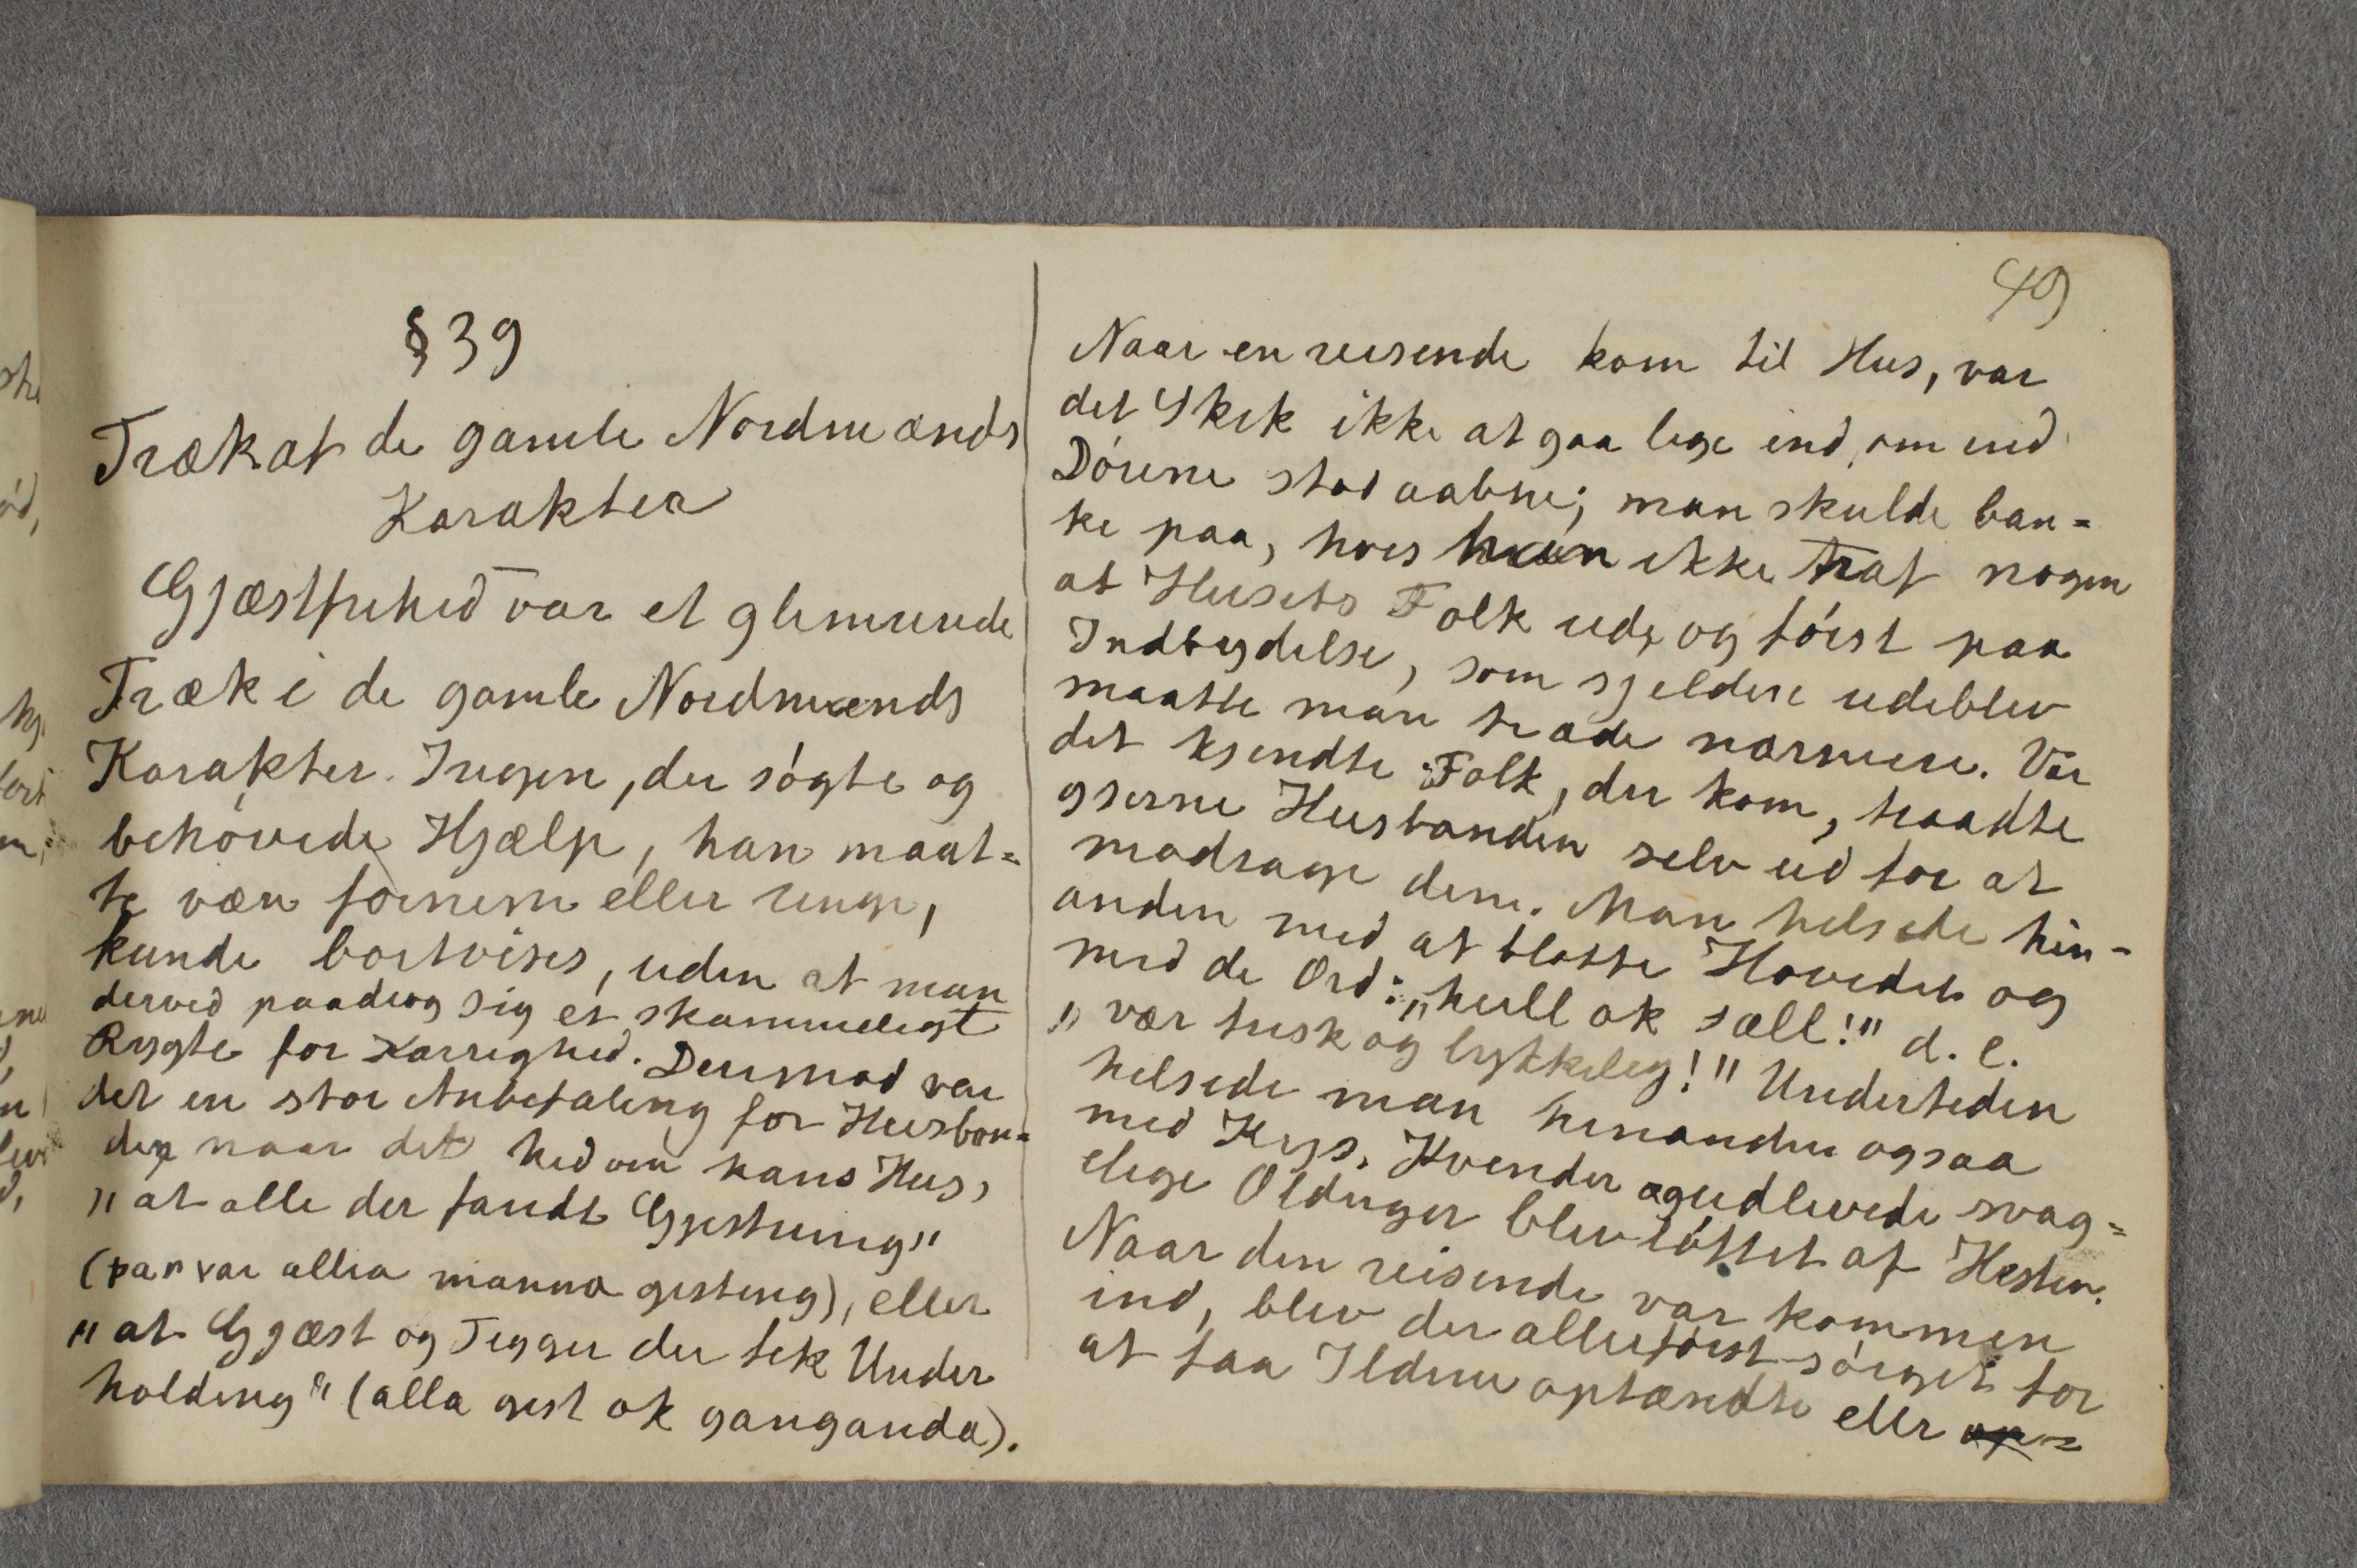 49
§ 39
Træk af de gamle Nordmænds
Karakter
Gjæstfrihed var et glimrende
Træk i de gamle Nordmænds
Karakter. Ingen, der søgte og
behøvede Hjælp, han maat=
te være fornem eller ringe,
kunde bortvises, uden at man
derved paadrog sig et skammeligt
Rygte for Karrighed. Derimod var
det en stor Anbefaling for Husbon=
den naar det hed om hans Hus,
"at alle der fandt Gjestning"
(þar var allra manna gisting), eller
"at Gjæst og Tigger der fik Under
holdning" (alla gest ok ganganda).
Naar en reisende kom til Hus, var
det Skik ikke at gaa lige ind, om end
Dørene stod aabne; man skulde ban=
ke paa, hvis han ikke traf nogen
af Husets Folk ude, og først paa
Indbydelse, som sjelden udeblev
maatte man træde nærmere. Var
det kjendte Folk, der kom, traadte
gjerne Husbonden selv ud for at
modtage dem. Man hilsede hin-
anden med at blotte Hovedet og
med de Ord: "heill ok sæll!" d. e.
"vær frisk og lykkelig!" Undertiden
hilsede man hinanden ogsaa
med Kys. Kvinder og udlevede svag=
elige Oldinger blev løftet af Hesten.
Naar den reisende var kommen
ind, blev der allerførst sørget for
at faa Ildene optændte eller op=